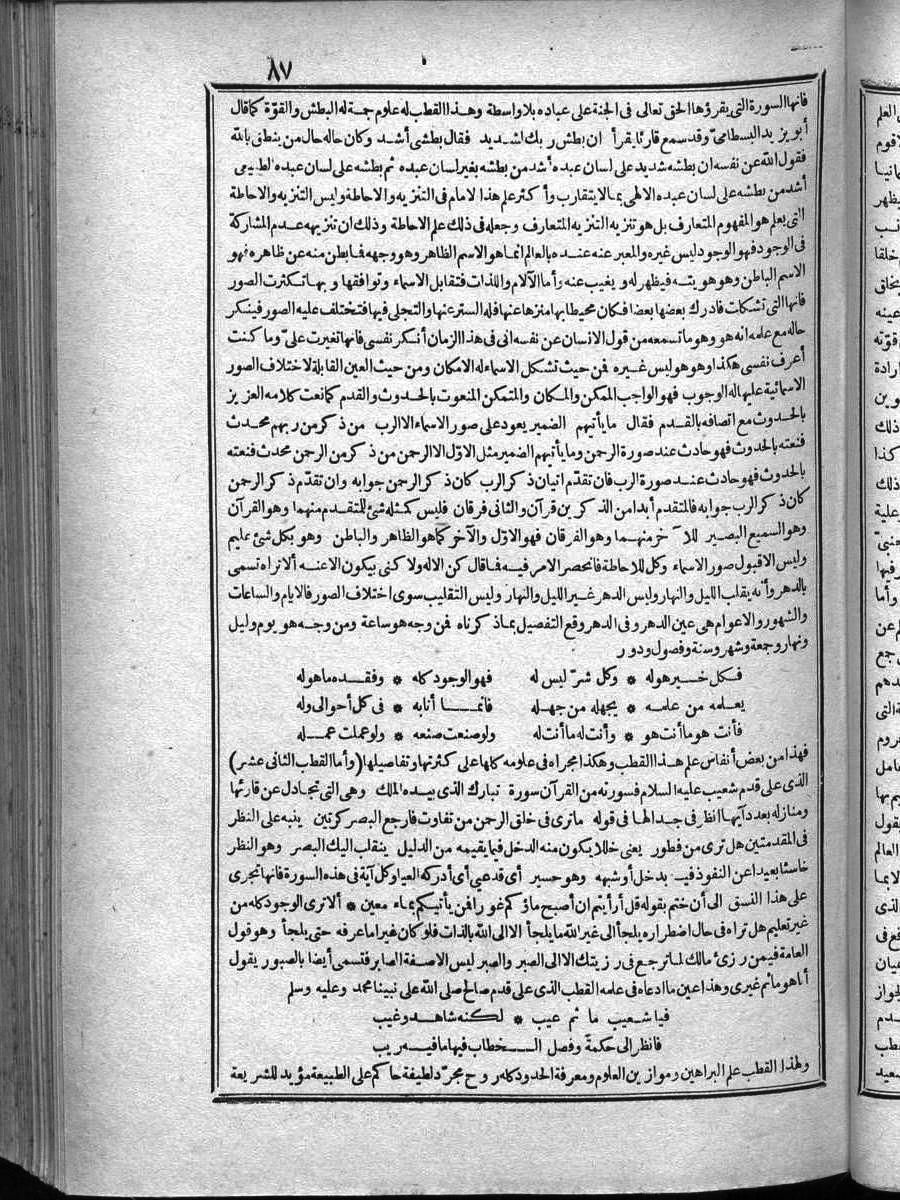 ٨٧
فانها السورة التى يقرؤها الحق تعالى فى الجنة على عباده بلا واسطة وهذا القطب له علوم جمة له البطش والقوّة كما قال
أبو يزيد البسطامىّ وقد سمع قارئا يقرأ ان بطش ربك لشديد فقال بطشى أشد وكان حاله حال من ينطق بالله
فقول الله عن نفسه ان بطشه شديد على لسان عبده أشد من بطشه بغير لسان عبده ثم بطشه على لسان عبده الطبيعى
أشد من بطشه على لسان عبده الالهى بما لا يتقارب وأكثر علم هذا الامام فى التنزيه والاحاطة وليس التنزيه والاحاطة
التى يعلم هو المفهوم المتعارف بل هو تنزيه التنزيه المتعارف وجعله فى ذلك علم الاحاطة وذلك ان تنزيهه عدم المشاركة
فى الوجود فهو الوجود ليس غيره والمعبر عنه عنده بالعالم انما هو الاسم الظاهر وهو وجهه فما بطن منه عن ظاهره فهو
الاسم الباطن وهو هويته فيظهر له ويغيب عنه وأما الآلام واللذات فتقابل الاسماء وتوافقها وبها تكثرت الصور
فانها التى تشكلت فادرك بعضها بعضا فكان محيطا بها منزها عنها فله الستر عنها والتجلى فيها فتختلف عليه الصور فينكر
حاله مع علمه انه هو وهو ما تسمعه من قول الانسان عن نفسه انى فى هذا الزمان أنكر نفسى فانها تغيرت علىّ وما كنت
أعرف نفسى هكذا وهو هو ليس غيره فمن حيث تشكل الاسماء له الامكان ومن حيث العين القابلة لاختلاف الصور
الاسمائية عليها له الوجوب فهو الواجب الممكن والمكان والمتمكن المنعوت بالحدوث والقدم كما نعت كلامه العزيز
بالحدوث مع اتصافه بالقدم فقال ما يأتيهم الضمير يعود على صور الاسماء الا الرب من ذكر من ربهم محدث
فنعته بالحدوث فهو حادث عند صورة الرحمن وما يأتيهم الضمير مثل الاوّل الا الرحمن من ذكر من الرحمن محدث فنعته
بالحدوث فهو حادث عند صورة الرب فان تقدّم اتيان ذكر الرب كان ذكر الرحمن جوابه وان تقدّم ذكر الرحمن
كان ذكر الرب جوابه فالمتقدم أبدا من الذكرين قرآن والثانى فرقان فليس كمثله شئ للمتقدم منهما وهو القرآن
وهو السميع البصير للآخر منهما وهو الفرقان فهو الاوّل والآخر كما هو الظاهر والباطن وهو بكل شئ عليم
وليس الا قبول صور الاسماء وكل للاحاطة فانحصر الامر فيه فما قال كن الا له ولا كنى بيكون الا عنه ألا تراه تسمى
بالدهر وأنه يقلب الليل والنهار وليس الدهر غير الليل والنهار وليس التقليب سوى اختلاف الصور فالايام والساعات
والشهور والاعوام هى عين الدهر وفى الدهر وقع التفصيل بما ذكرناه فمن وجه هو ساعة ومن وجه هو يوم وليل
ونهار وجمعة وشهر وسنة وفصول ودور
فكل خير هو له * وكل شرّ ليس له فهو الوجود كله * وفقده ما هو له
يعلمه من علمه * يجهله من جهله فانما أنا به * فى كل أحوالى وله
فأنت هو ما أنت هو * وأنت له ما أنت له ولو صنعت صنعه * ولو عملت عمله
فهذا من بعض أنفاس علم هذا القطب وهكذا مجراه فى علومه كلها على كثرتها وتفاصيلها (وأما القطب الثانى عشر)
الذى على قدم شعيب عليه السلام فسورته من القرآن سورة تبارك الذى بيده الملك وهى التى تجادل عن قارئها
ومنازله بعدد آيها انظر فى جدالها فى قوله ما ترى فى خلق الرحمن من تفاوت فارجع البصر كرتين ينبه على النظر
فى المقدمتين هل ترى من فطور يعنى خللا يكون منه الدخل فيما يقيمه من الدليل ينقلب اليك البصر وهو النظر
خاسئا بعيدا عن النفوذ فيه بدخل أو شبهه وهو حسير أى قد عيى أى أدركه العيا وكل آية فى هذه السورة فانها تجرى
على هذا النسق الى أن ختم بقوله قل أرأيتم ان أصبح ماؤكم غورا فمن يأتيكم بماء معين * ألا ترى الوجود كله من
غير تعليم هل تراه فى حال اضطراره يلجأ الى غير الله ما يلجأ الا الى الله بالذات فلو كان غيرا ما عرفه حتى يلجأ وهو قول
العامة فيمن رزئ مالك لما ترجع فى رزيتك الا الى الصبر والصبر ليس الا صفة الصابر فتسمى أيضا بالصبور يقول
أنا هو ما ثم غيرى وهذا عين ما ادعاه فى علمه القطب الذى على قدم صالح صلى الله على نبينا محمد وعليه وسلم
فيا شعيب ما ثم عيب * لكنه شاهد وغيب
فانظر الى حكمة وفصل الخطاب فيها ما فيه ريب
ولهذا القطب علم البراهين وموازين العلوم ومعرفة الحدود كله روح مجرّد لطيفة حاكم على الطبيعة مؤيد للشريعة